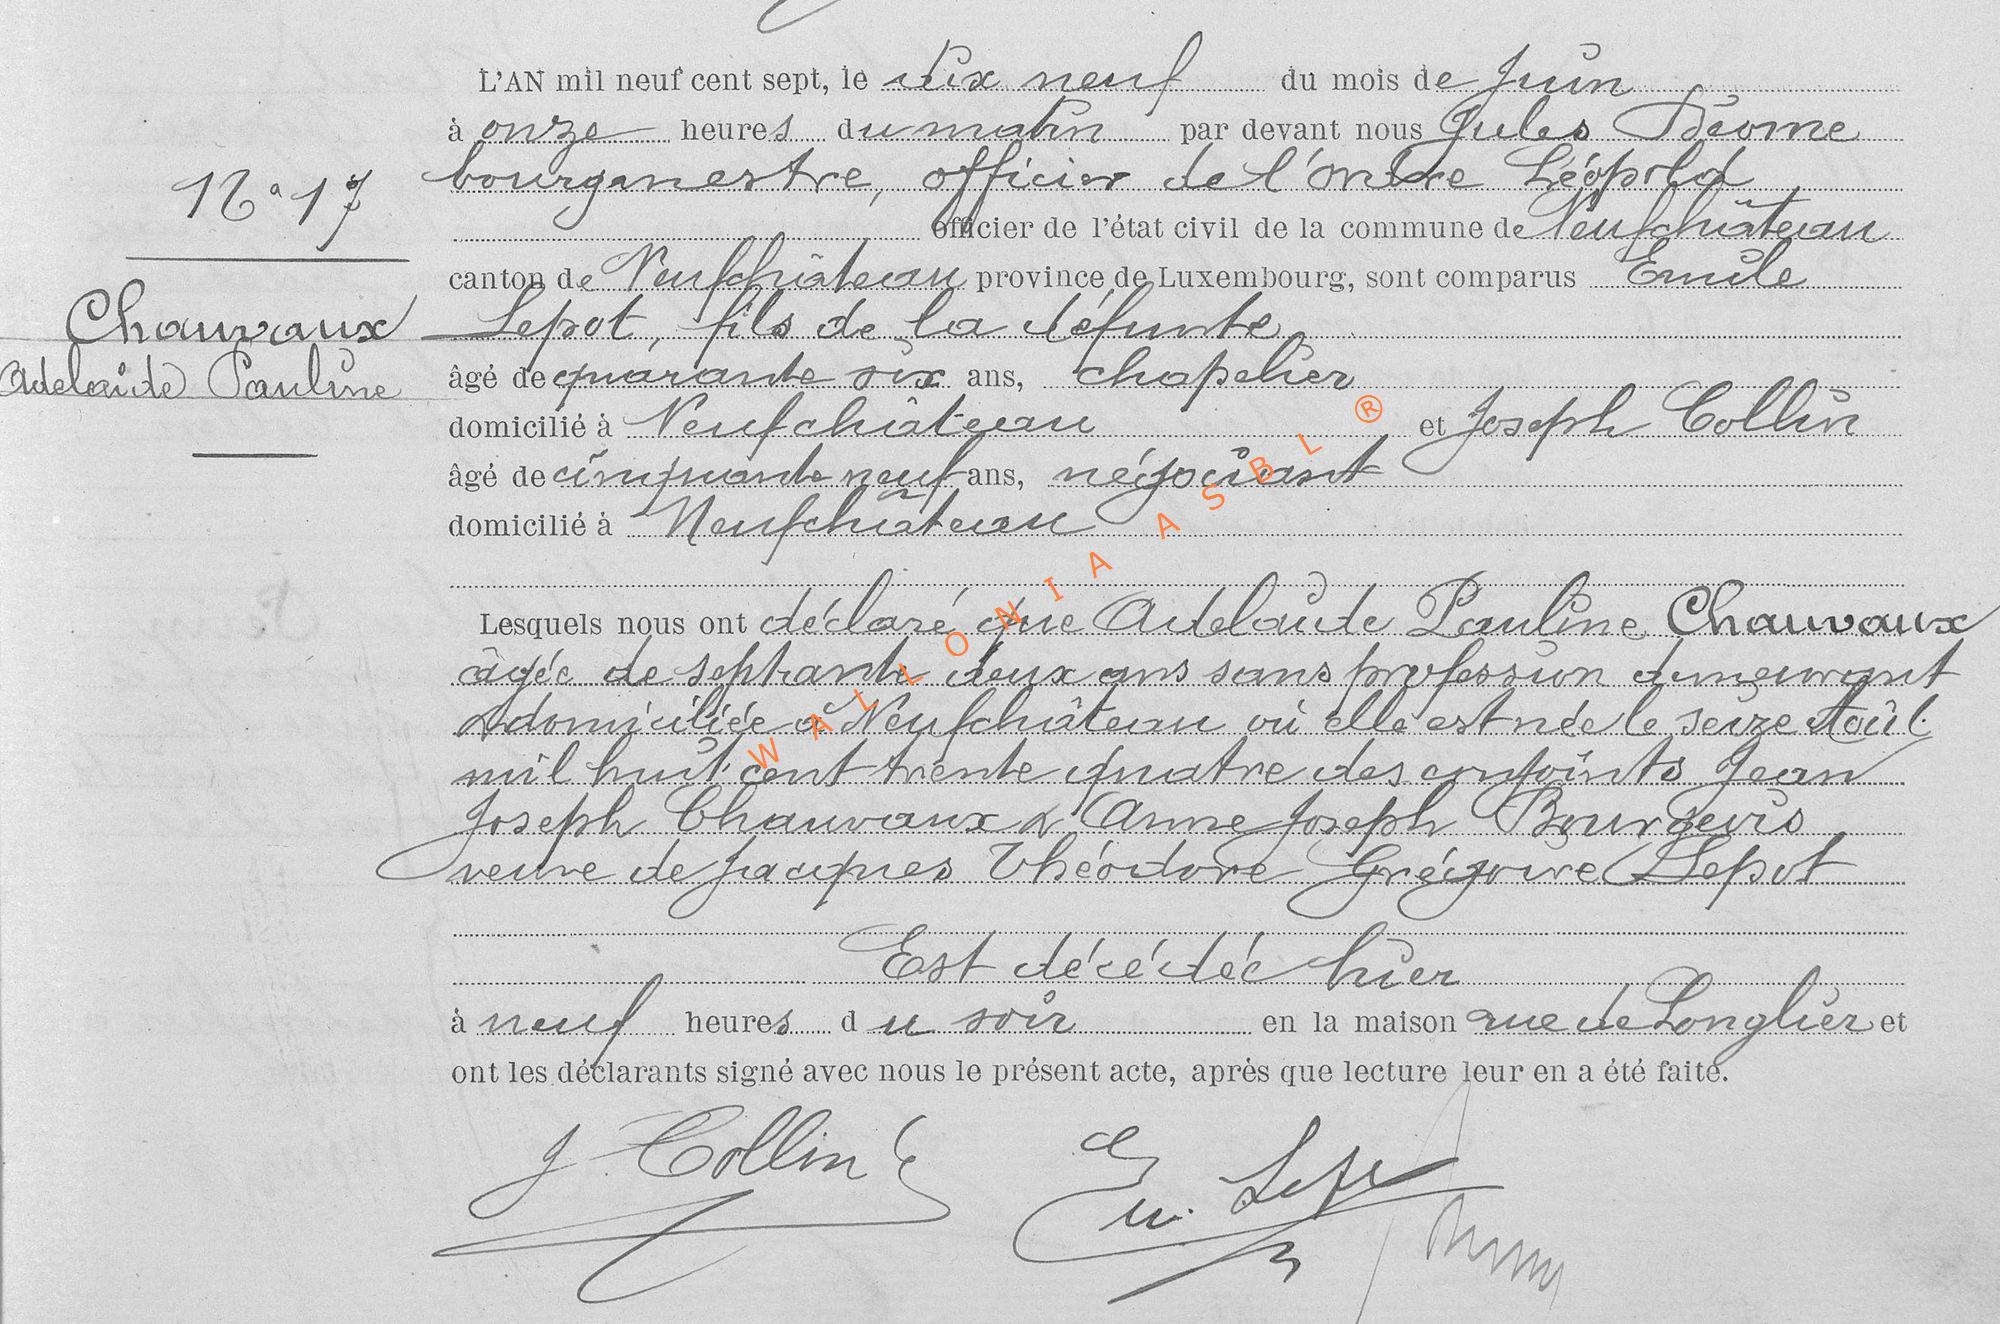 L'AN mil neuf cent sept, le dix neuf du mois de Juin
à onze heures du matin par devant nous Jules
bourgmestre, officier de l'ordre Léopold
N° 17
officier de l'état civil de la commune de Neufchâteau
canton de Neufchâteau province de Luxembourg, sont comparus Emile
Chauvaux
Lepot, fils de la défunte,
Adelaïde Pauline
âgé de quarante six ans, chapelier
domicilié à Neufchâteau et Joseph Collin
âgé de cinquante neuf ans, négociant
domicilié à Neufchâteau
Lesquels nous ont déclaré que Adelaïde Pauline Chauvaux
âgée de septante deux ans sans profession demeurant
& domiciliée à Neufchâteau où elle est née le seize Août
mil huit cent trente quatre des conjoints Jean
Joseph Chauvaux & Anne Joseph Bourgeois
veuve de Jacques Théodore Grégoire Lepot
Est décédée hier
à neuf heures du soir en la maison rue de Longlier et
ont les déclarants signé avec nous le présent acte, après que lecture leur en a été faite.
J Collin Em. Lepot
WALLONIA ASBL ®